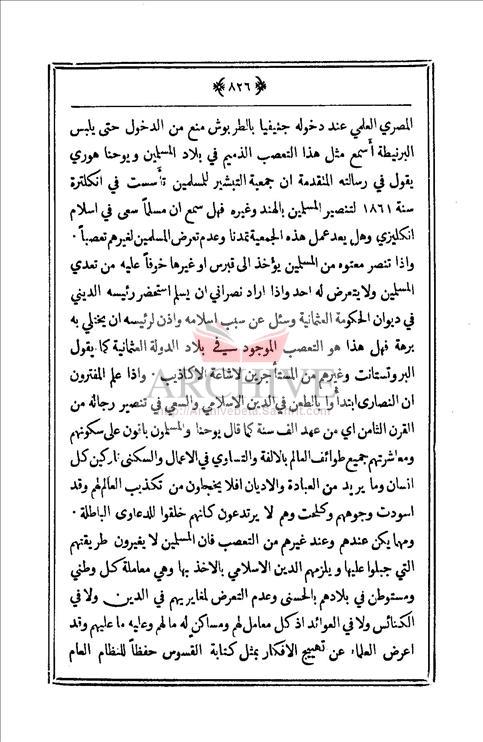 ﴿ ٨٢٦ ﴾
المصري العلمي عند دخوله جنيفيا بالطربوش منع من الدخول حتى يلبس
البرنيطة أسمع مثل هذا التعصب الذميم في بلاد المسلمين ويوحنا هوري
يقول في رسالته المنقدمة ان جمعية التبشير للمسلمين تأسست في انكلترة
سنة ١٨٦١ لتنصير المسلمين بالهند وغيره فهل سمع ان مسلماً سعى في اسلام
انكليزي وهل يعد عمل هذه الجمعية تمدنا وعدم تعرض المسلمين لغيرهم تعصباً ٠
واذا تنصر معتوه من المسلمين يؤخذ الى قبرس او غيرها خوفاً عليه من تعدي
المسلمين ولا يتعرض له احد واذا اراد نصراني ان يسلم استحضر رئيسه الديني
في ديوان الحكومة العثمانية وسئل عن سبب اسلامه واذن لرئيسه ان يختلي به
برهة فهل هذا هو التعصب الموجود في بلاد الدولة العثمانية كما يقول
البروتستانت وغيرهم من المستأجرين لاشاعة الاكاذيب ٠ واذا علم المفترون
ARCHIVE
http://Archivebeta.Sakhrit.com
ان النصارى ابتدأوا بالطعن في الدين الاسلامي والسعي في تنصير رجاله من
القرن الثامن اي من عهد الف سنة كما قال يوحنا والمسلمون باتون على سكونهم
ومعاشرتهم جميع طوائف العالم بالالفة والتساوي في الاعمال والسكنى تاركين كل
انسان وما يريد من العبادة والاديان افلا يخجلون من تكذيب العالم لهم وقد
اسودت وجوههم وكلحت وهم لا يرتدعون كانهم خلقوا للدعاوى الباطلة ٠
ومهما يكن عندهم وعند غيرهم من التعصب فان المسلمين لا يغيرون طريقتهم
التي جبلوا عليها و يلزمهم الدين الاسلامي بالاخذ بها وهي معاملة كل وطني
ومستوطن في بلادهم بالحسنى وعدم التعرض لمغايريهم في الدين ولا في
الكنائس ولا في العوائد اذ كل معامل لهم ومساكن له ما لهم وعليه ما عليهم وقد
اعرض العلماء عن تهييج الافكار بمثل كتابة القسوس حفظاً للنظام العام